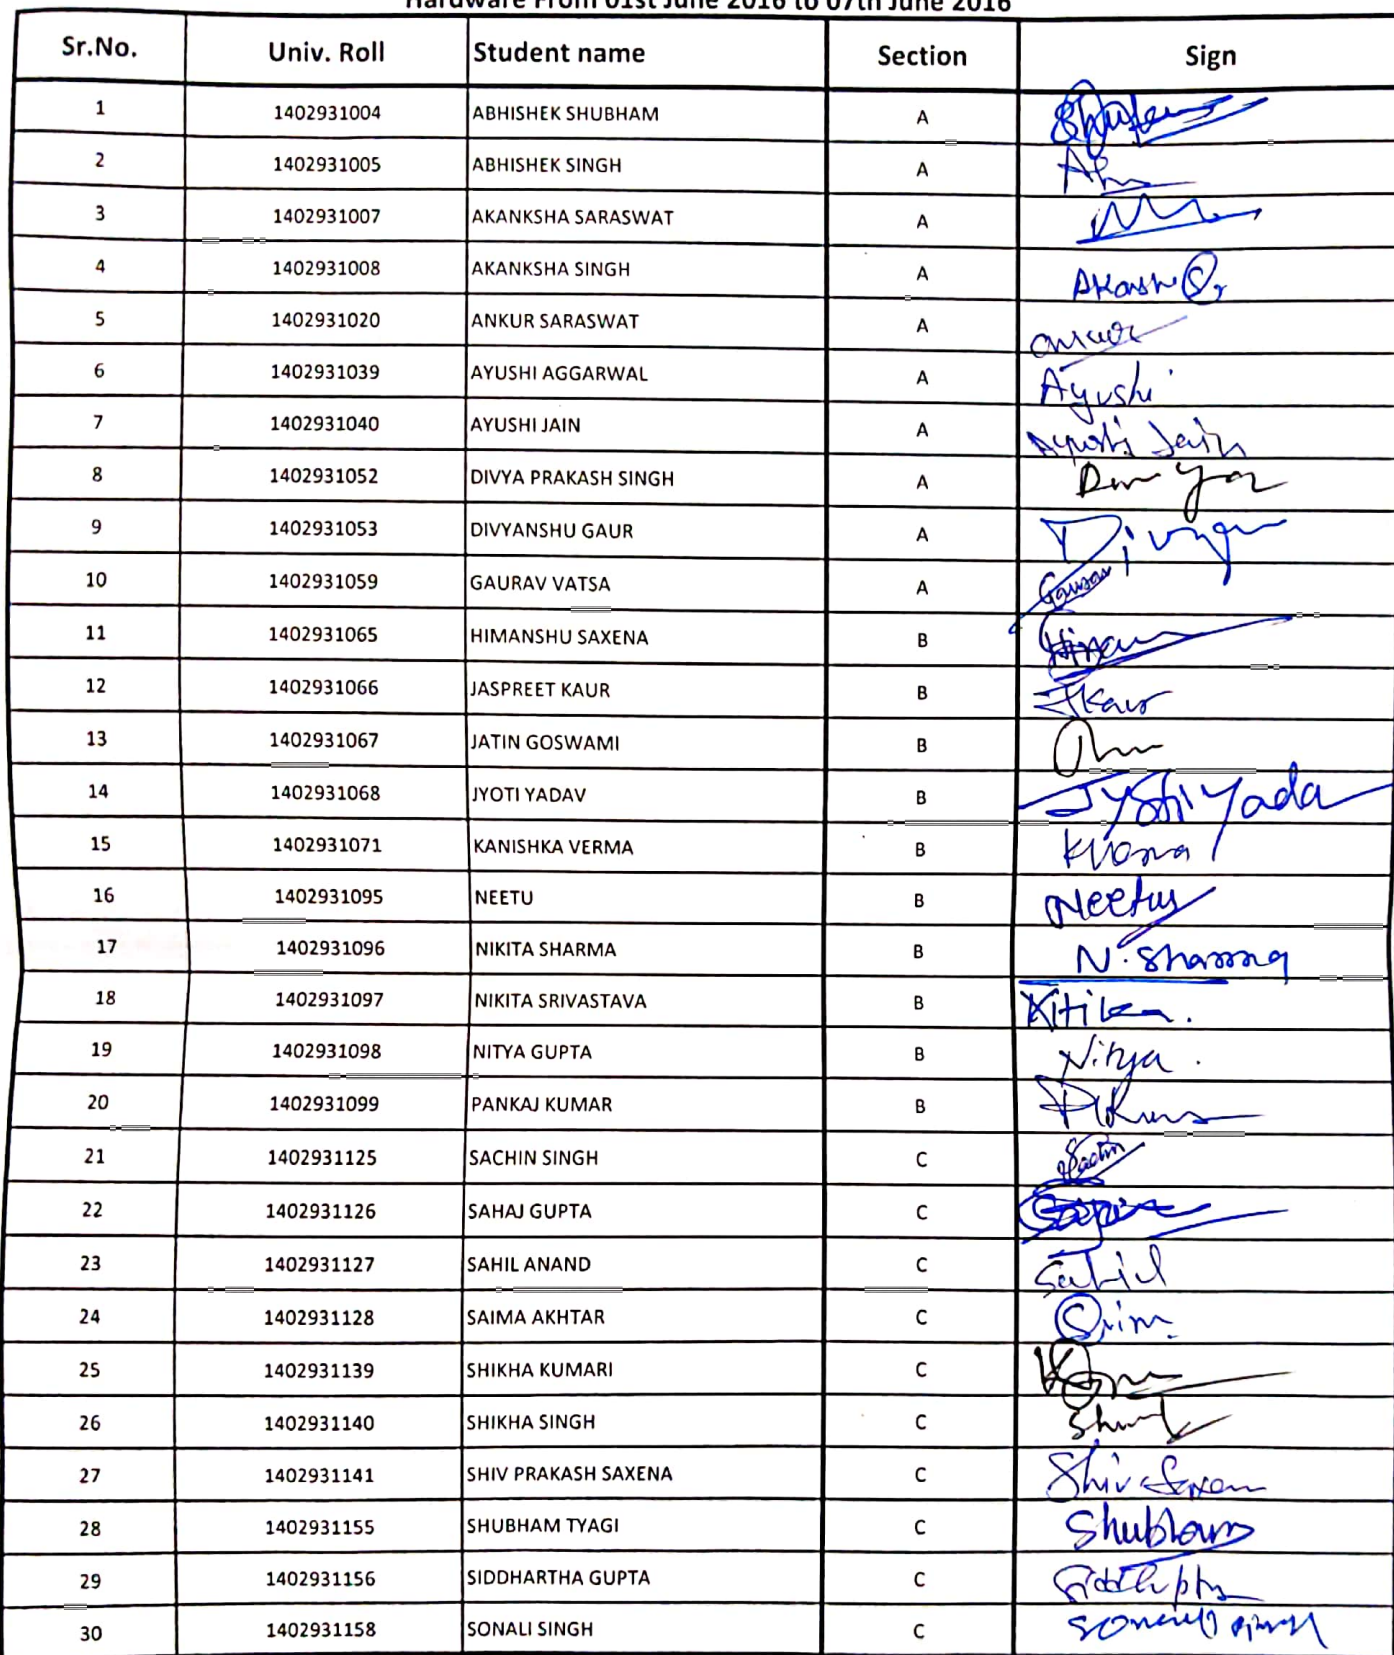 Hardware From 01st June 2016 to 07th June 2016
Sr.No. Univ. Roll Student name Section Sign
1 1402931004 ABHISHEK SHUBHAM A
2 1402931005 ABHISHEK SINGH A
3 1402931007 AKANKSHA SARASWAT A
4 1402931008 AKANKSHA SINGH A
5 1402931020 ANKUR SARASWAT A
6 1402931039 AYUSHI AGGARWAL A Ayushi
7 1402931040 AYUSHI JAIN A Ayushi Jain
8 1402931052 DIVYA PRAKASH SINGH A
9 1402931053 DIVYANSHU GAUR A
10 1402931059 GAURAV VATSA A
11 1402931065 HIMANSHU SAXENA B
12 1402931066 JASPREET KAUR B JKaur
13 1402931067 JATIN GOSWAMI B
14 1402931068 JYOTI YADAV B
15 1402931071 KANISHKA VERMA B
16 1402931095 NEETU B
17 1402931096 NIKITA SHARMA B N. Sharma
18 1402931097 NIKITA SRIVASTAVA B
19 1402931098 NITYA GUPTA B Nitya
20 1402931099 PANKAJ KUMAR B
21 1402931125 SACHIN SINGH C
22 1402931126 SAHAJ GUPTA C
23 1402931127 SAHIL ANAND C Sahil
24 1402931128 SAIMA AKHTAR C
25 1402931139 SHIKHA KUMARI C
26 1402931140 SHIKHA SINGH C
27 1402931141 SHIV PRAKASH SAXENA C
28 1402931155 SHUBHAM TYAGI C Shubham
29 1402931156 SIDDHARTHA GUPTA C
30 1402931158 SONALI SINGH C Sonali Singh